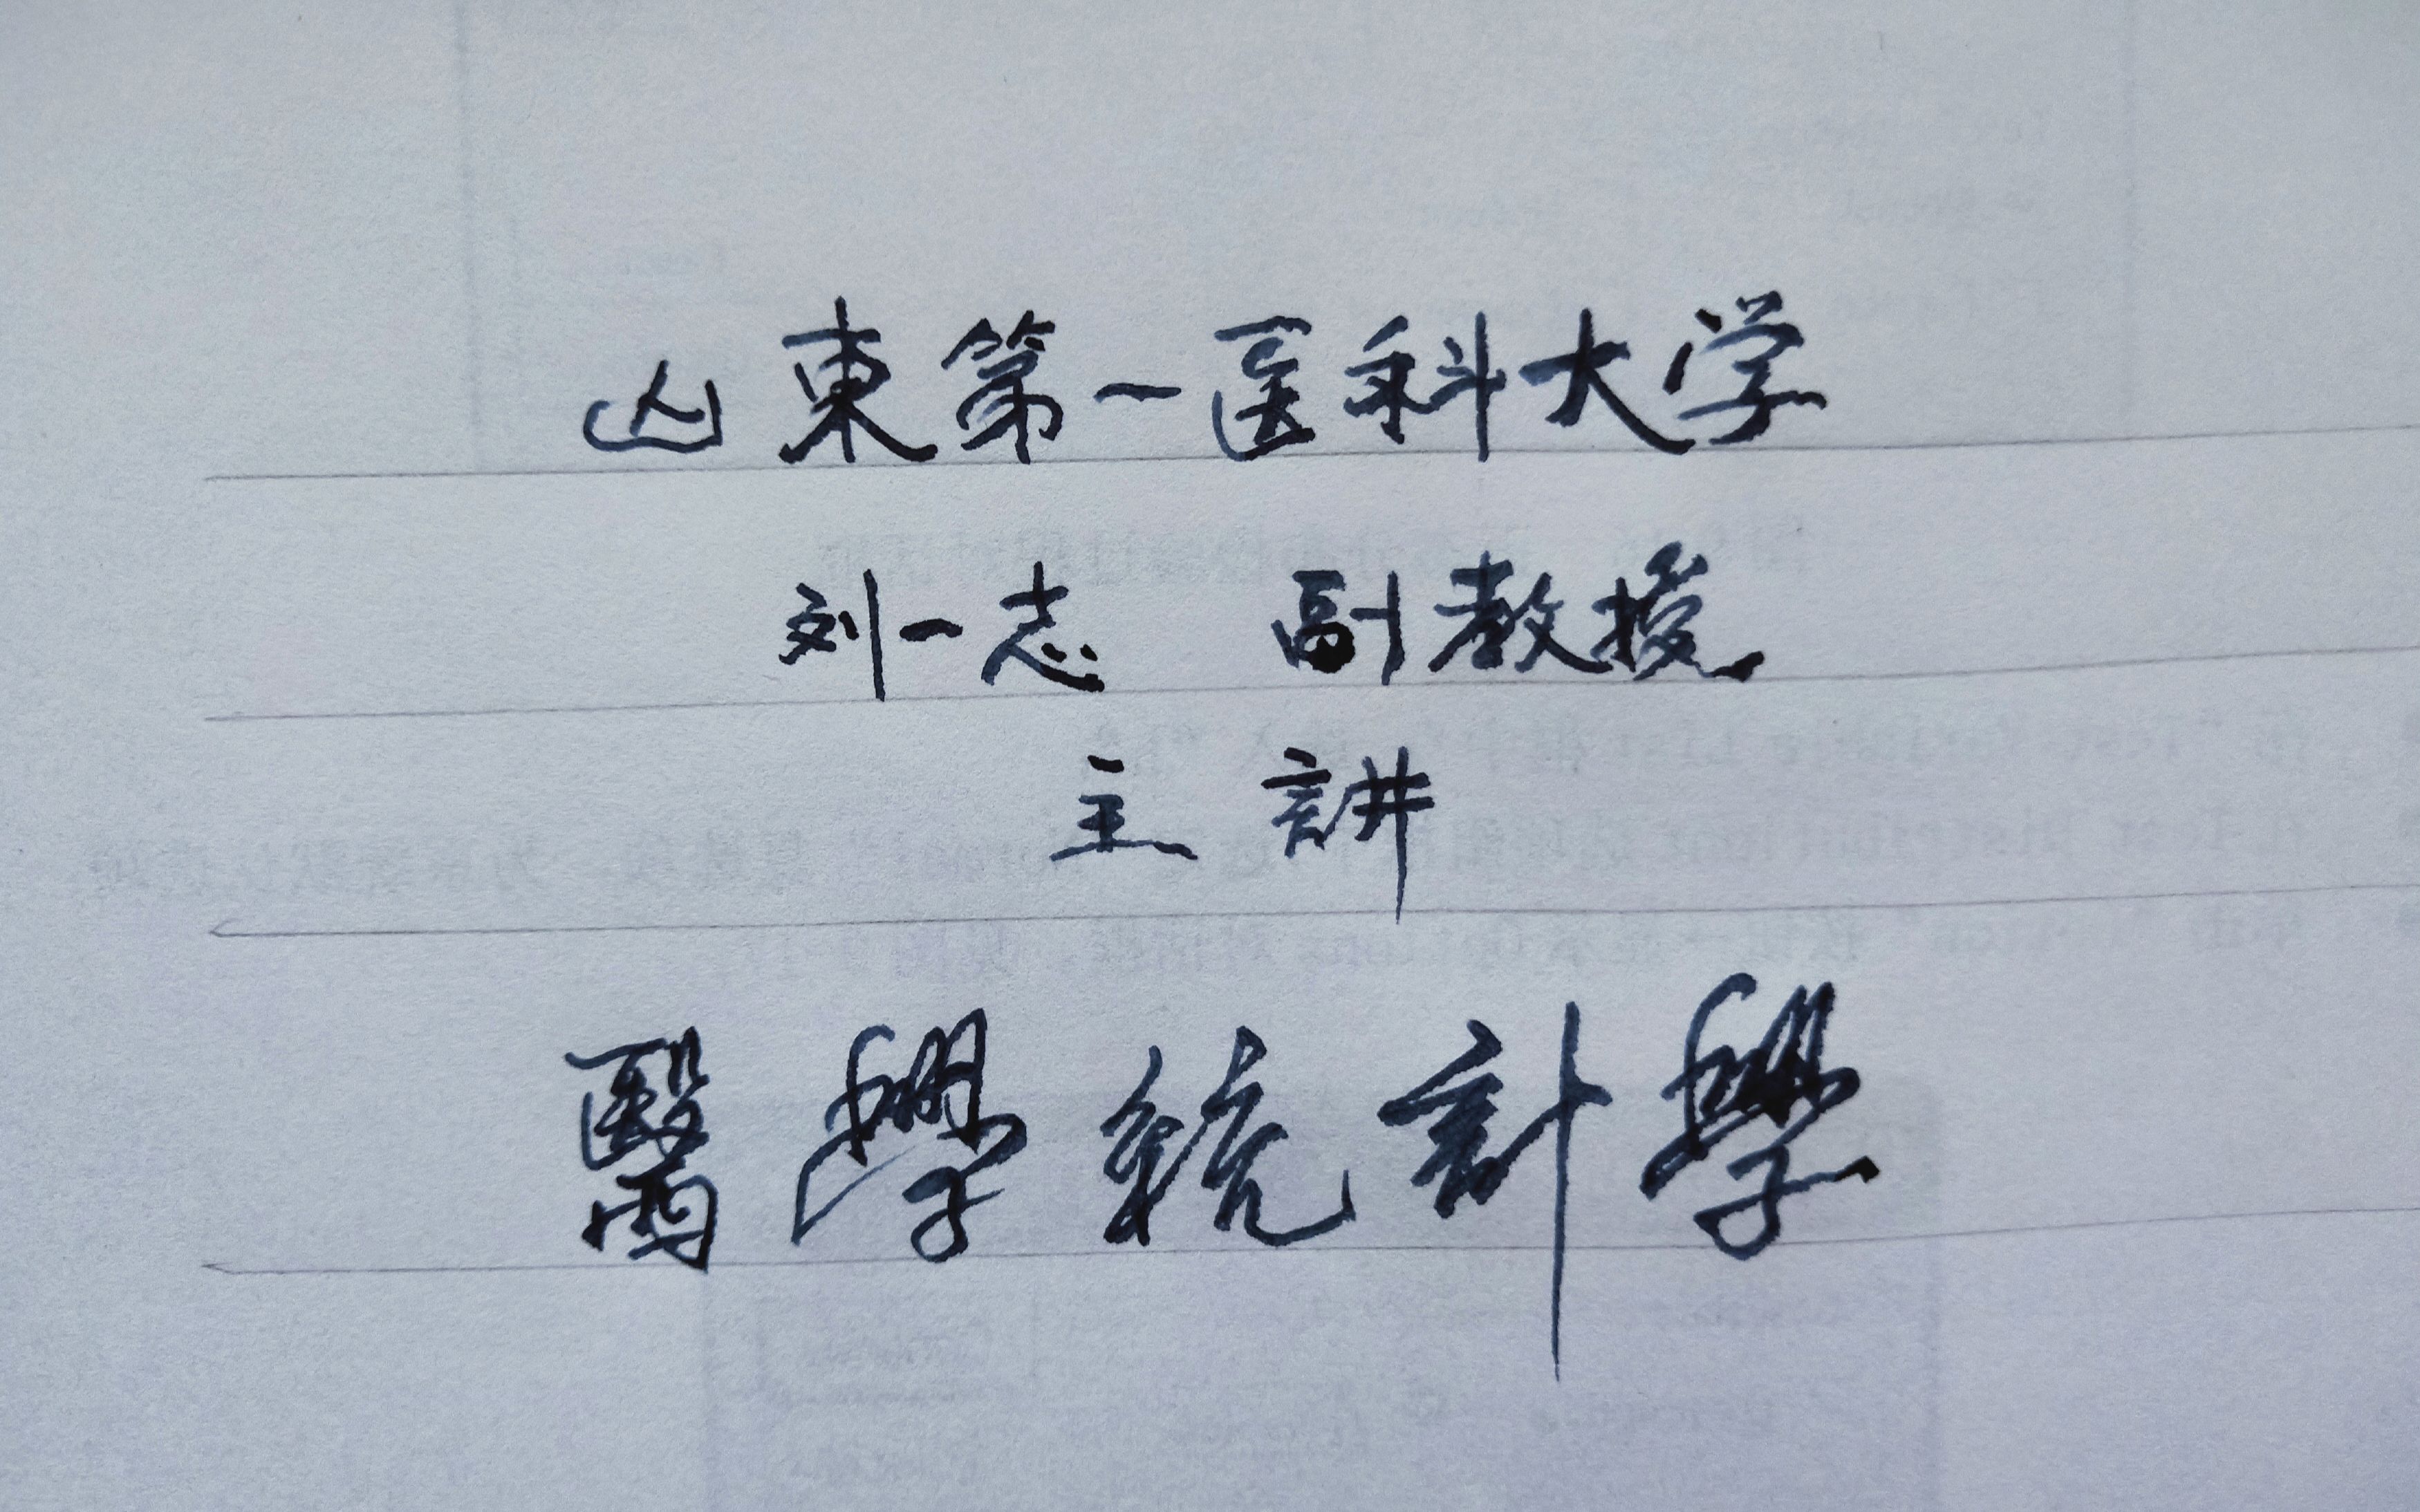 山東第一医科大学
刘一志 副教授
主 講
醫學統計學